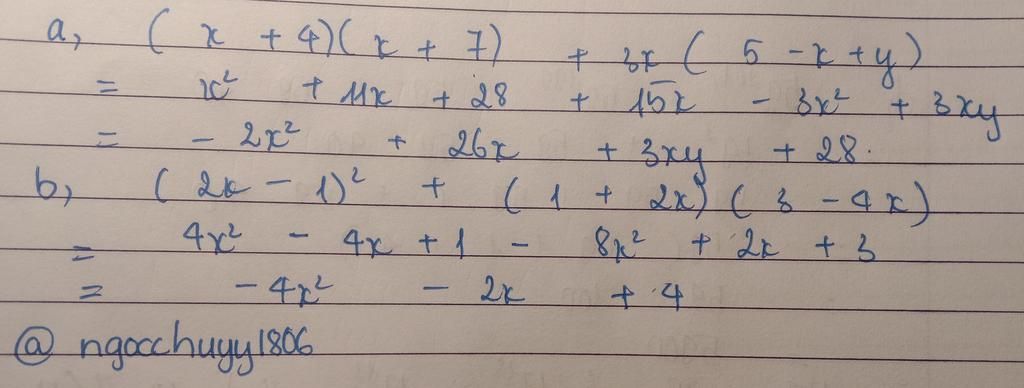 a, (x + 4)(x + 7) + 3x (5 - x + y)
= x² + 11x + 28 + 15x - 3x² + 3xy
= - 2x² + 26x + 3xy + 28.
b, (2x - 1)² + (1 + 2x) (3 - 4x)
= 4x² - 4x + 1 - 8x² + 2x + 3
= - 4x² - 2x + 4
@ ngocchuyy1806